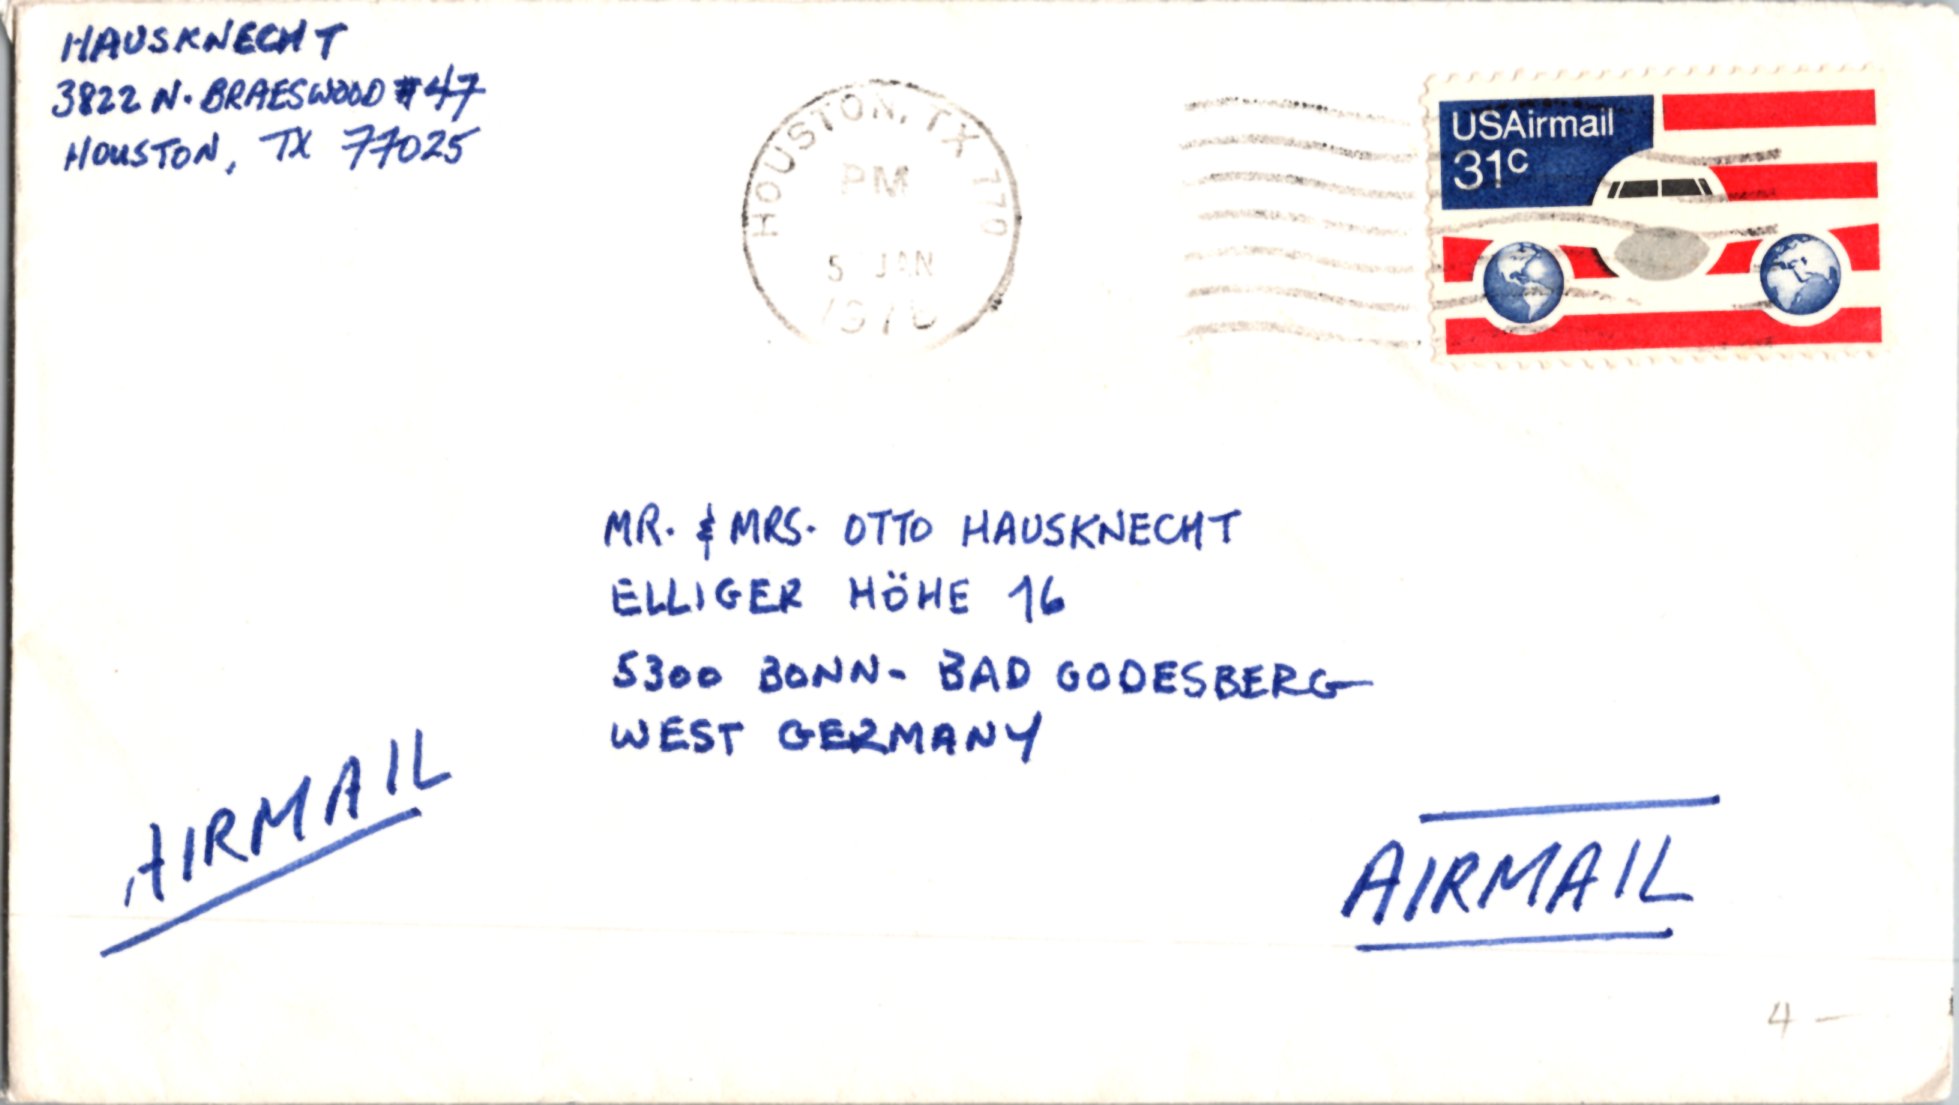 HAUSKNECHT
3822 N. BRAESWOOD #47
HOUSTON, TX 77025
HOUSTON, TX 770
PM
5 JAN
USAirmail
31c
MR. & MRS. OTTO HAUSKNECHT
ELLIGER HÖHE 16
5300 BONN- BAD GODESBERG
WEST GERMANY
AIRMAIL
AIRMAIL
4 –